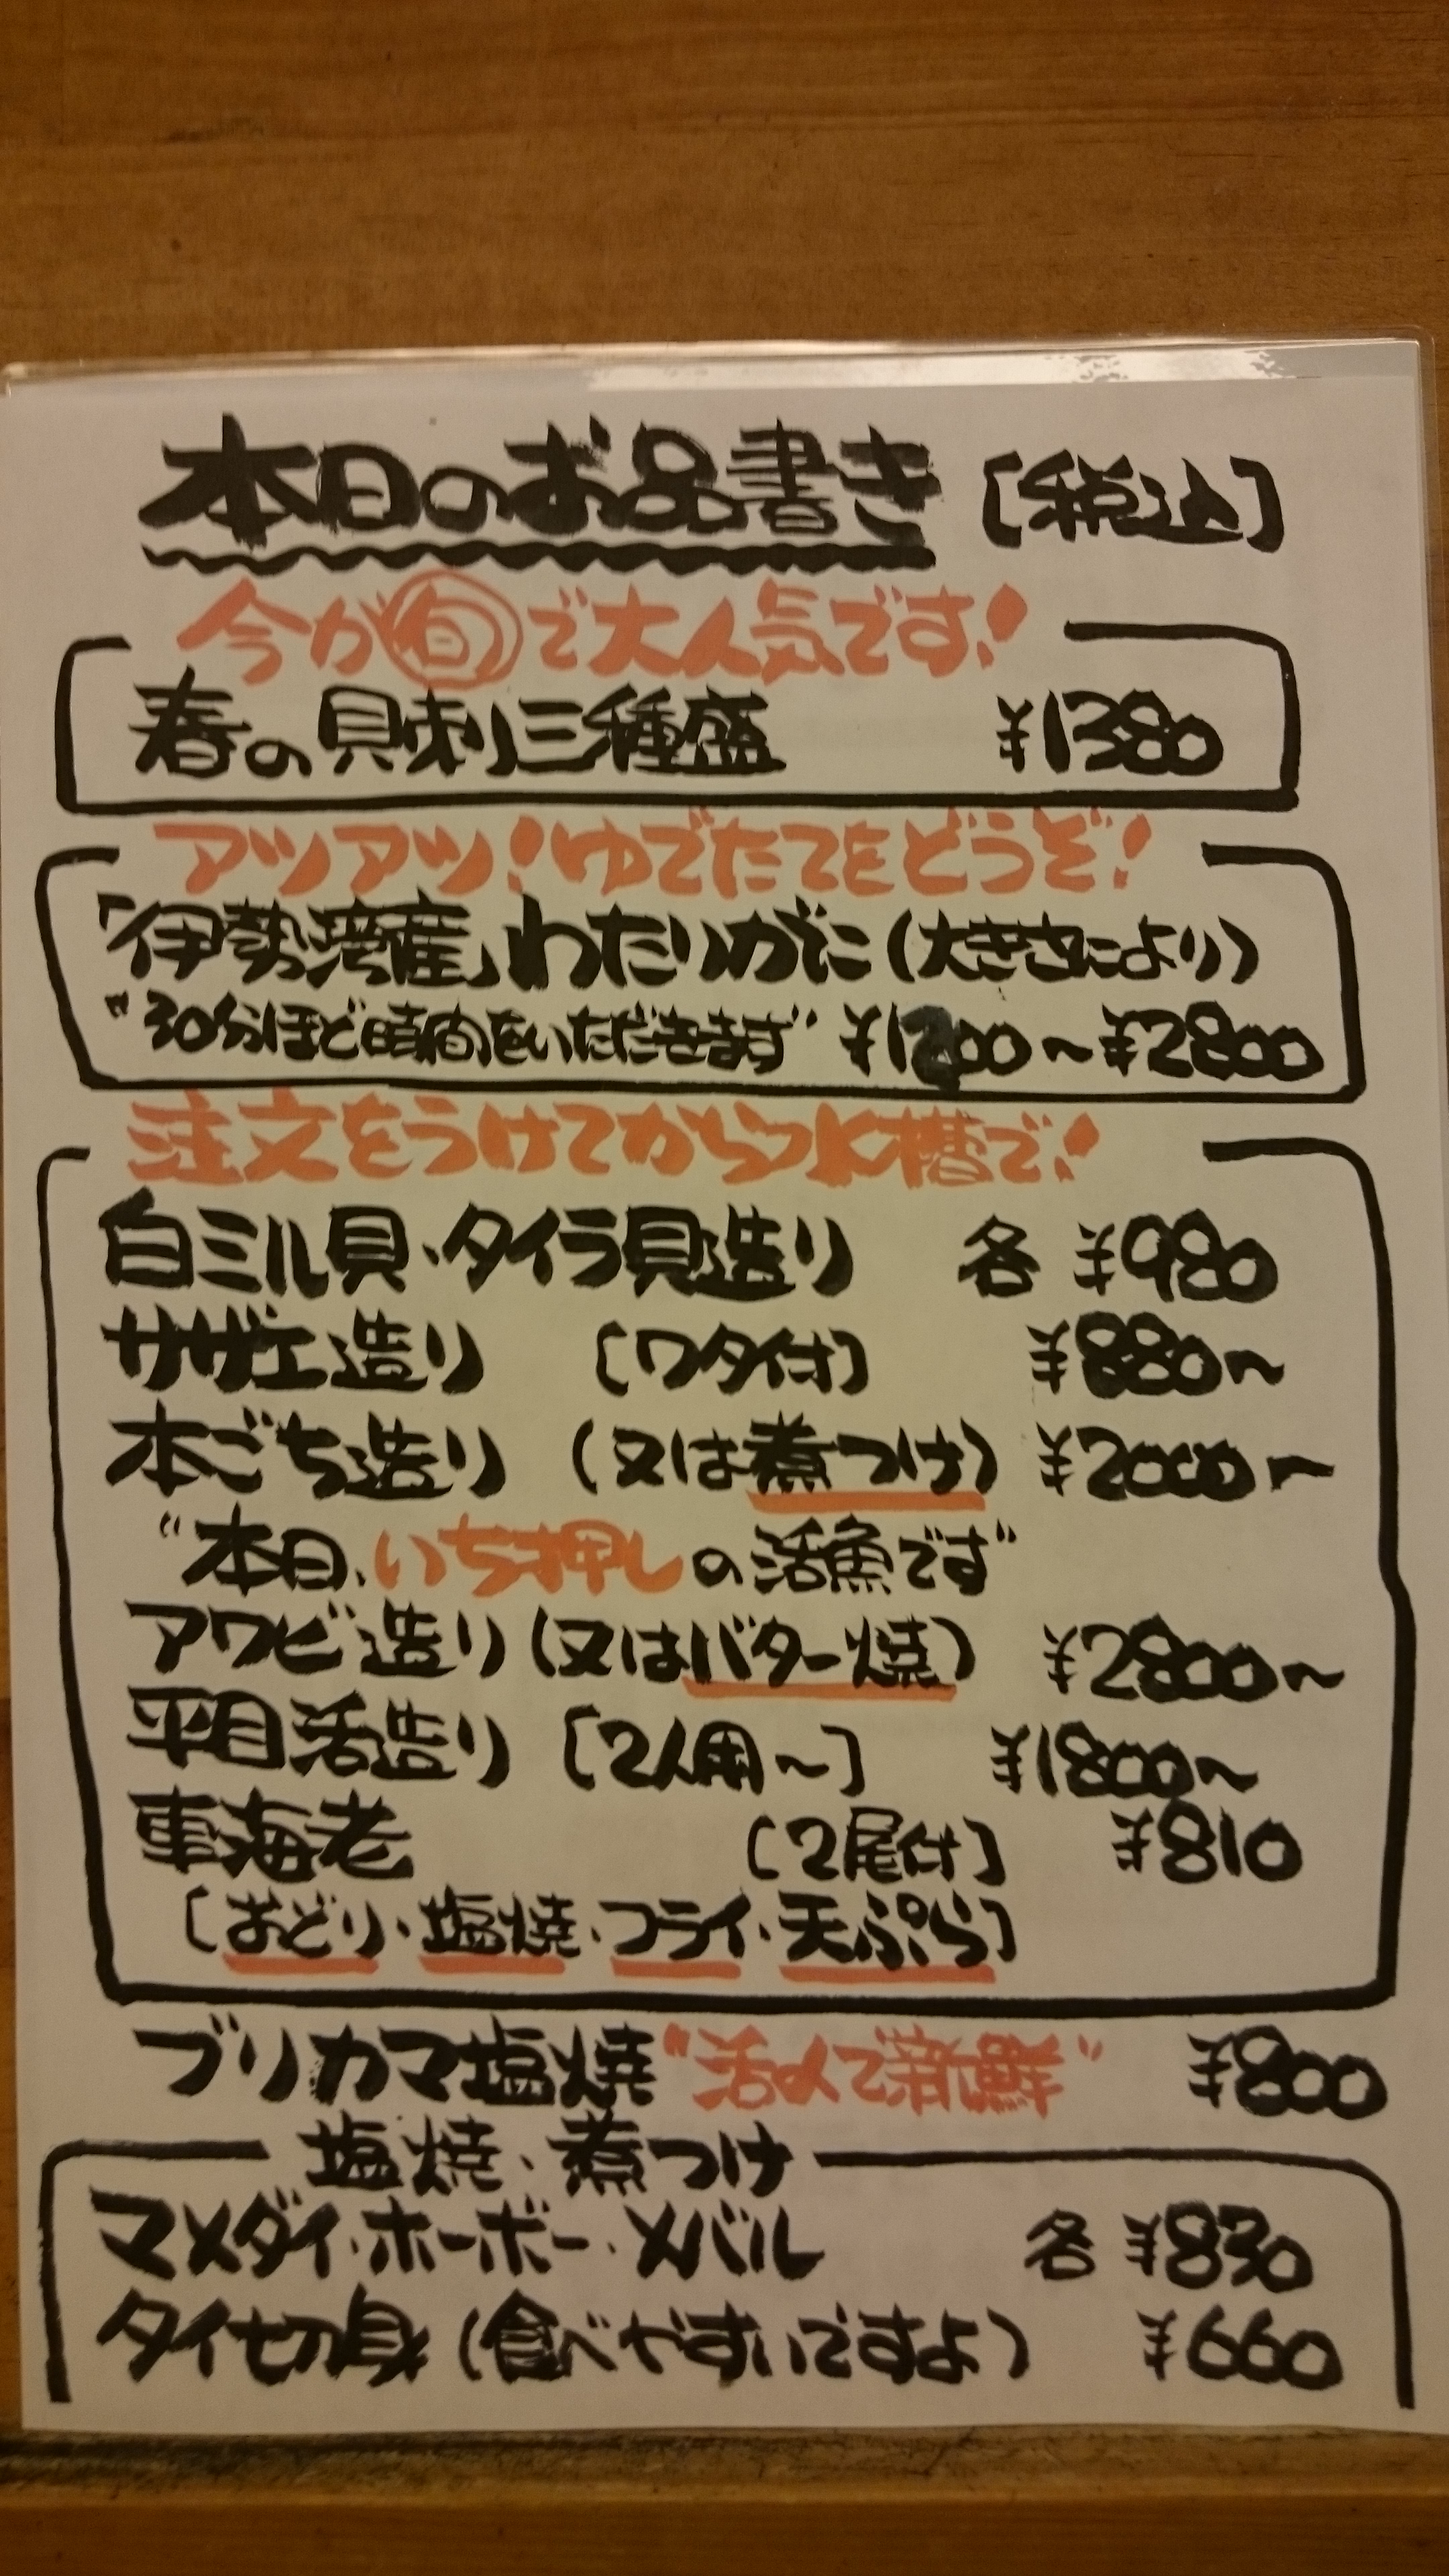 本日のお品書き [税込]
今が旬で大人気です!
春の貝刺し三種盛 ¥1380
アツアツ!ゆでたてをどうぞ!
「伊勢湾産」わたりがに(大きさにより)
"30分ほど時間をいただきます" ¥1200〜¥2800
注文をうけてから水槽で!
白ミル貝・タイラ貝造り 各 ¥980
サザエ造り [ワタ付] ¥880〜
本ごち造り (又は煮つけ) ¥2000〜
"本日、いち押しの活魚です"
アワビ造り(又はバター焼) ¥2800〜
平目活造り [2人用〜] ¥1800〜
車海老 [2尾付] ¥810
[おどり・塩焼・フライ・天ぷら]
ブリカマ塩焼"活〆で新鮮" ¥800
塩焼・煮つけ
マメダイ・ホーボー・メバル 各 ¥850
タイ切身(食べやすいですよ) ¥660